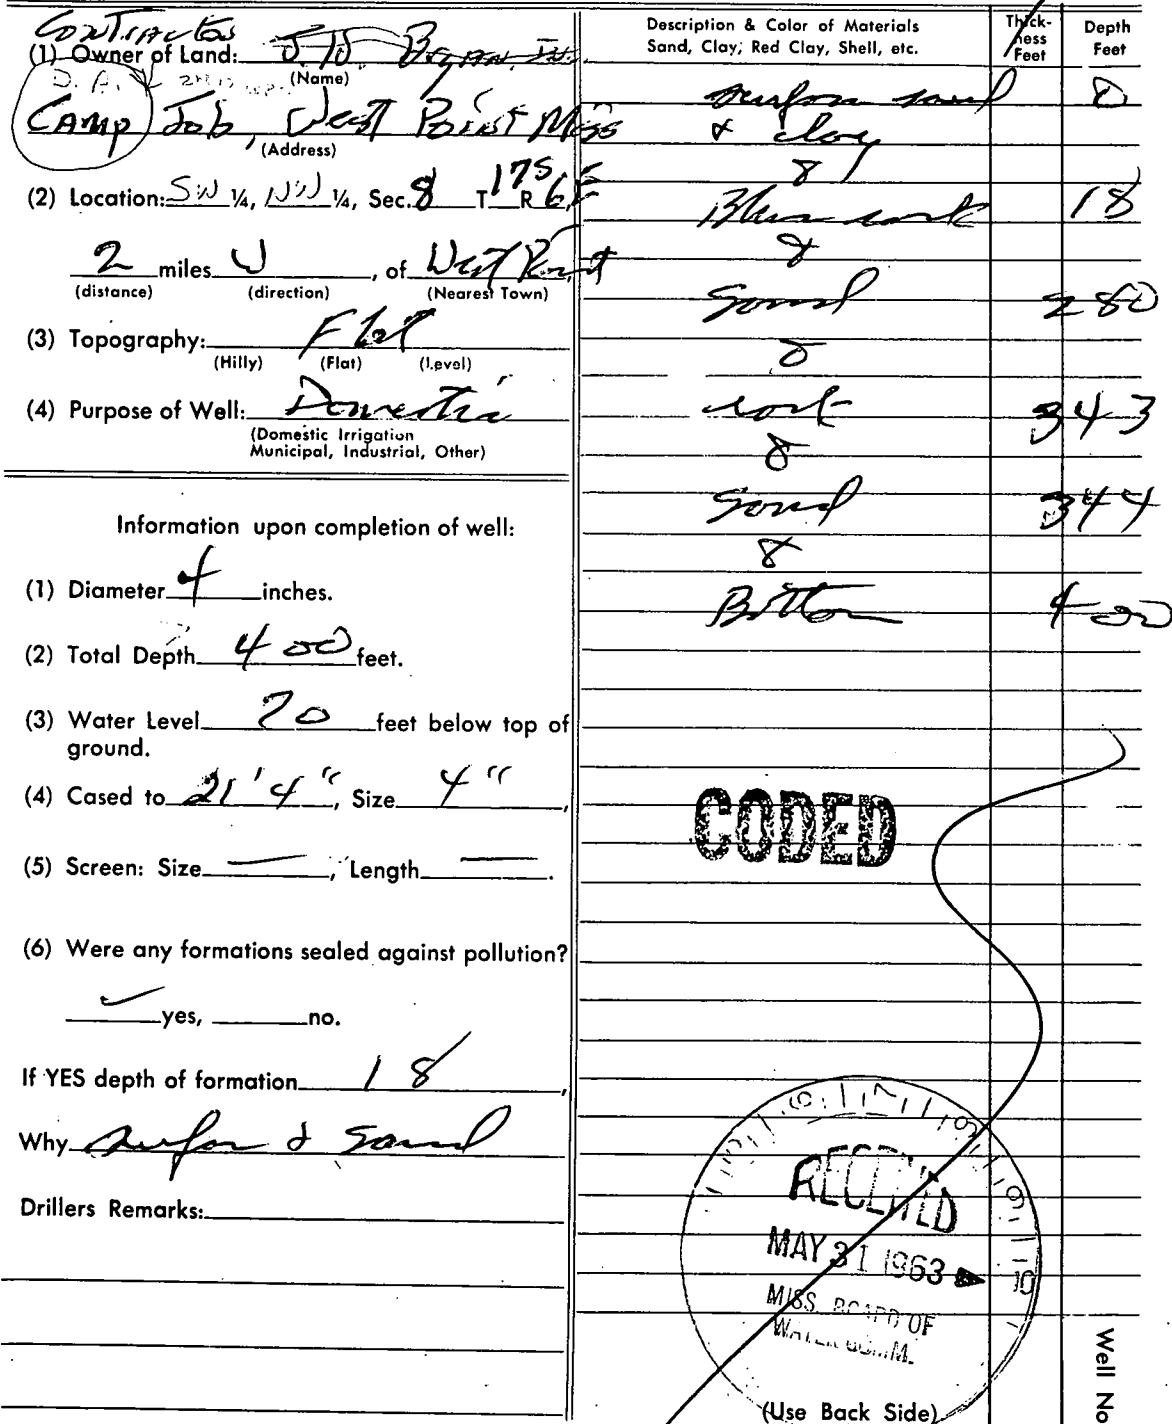 Contractor
(1) Owner of Land: J. W. Bryan, Jr.
(Name)
D. A.
Camp Job, West Point Miss
(Address)
(2) Location: SW ¼, NW ¼, Sec. 8 T 17S R 6E
2 miles W, of West Point
(distance) (direction) (Nearest Town)
(3) Topography: Flat
(Hilly) (Flat) (Level)
(4) Purpose of Well: Domestic
(Domestic Irrigation
Municipal, Industrial, Other)
Information upon completion of well:
(1) Diameter 4 inches.
(2) Total Depth 400 feet.
(3) Water Level 70 feet below top of
ground.
(4) Cased to 21'4", Size 4",
(5) Screen: Size —, Length —.
(6) Were any formations sealed against pollution?
✓ yes, no.
If YES depth of formation 18,
Why surfon & Sand
Drillers Remarks:
Description & Color of Materials
Sand, Clay; Red Clay, Shell, etc.
Thick-
ness
Feet
Depth
Feet
surfon sand 0
& clay
&
Blue rock 18
&
Sand 280
&
rock 343
&
Sand 344
&
Bottom 400
CODED
RECEIVED
MAY 31 1963
MISS. BOARD OF
WATER COMM.
(Use Back Side)
Well No